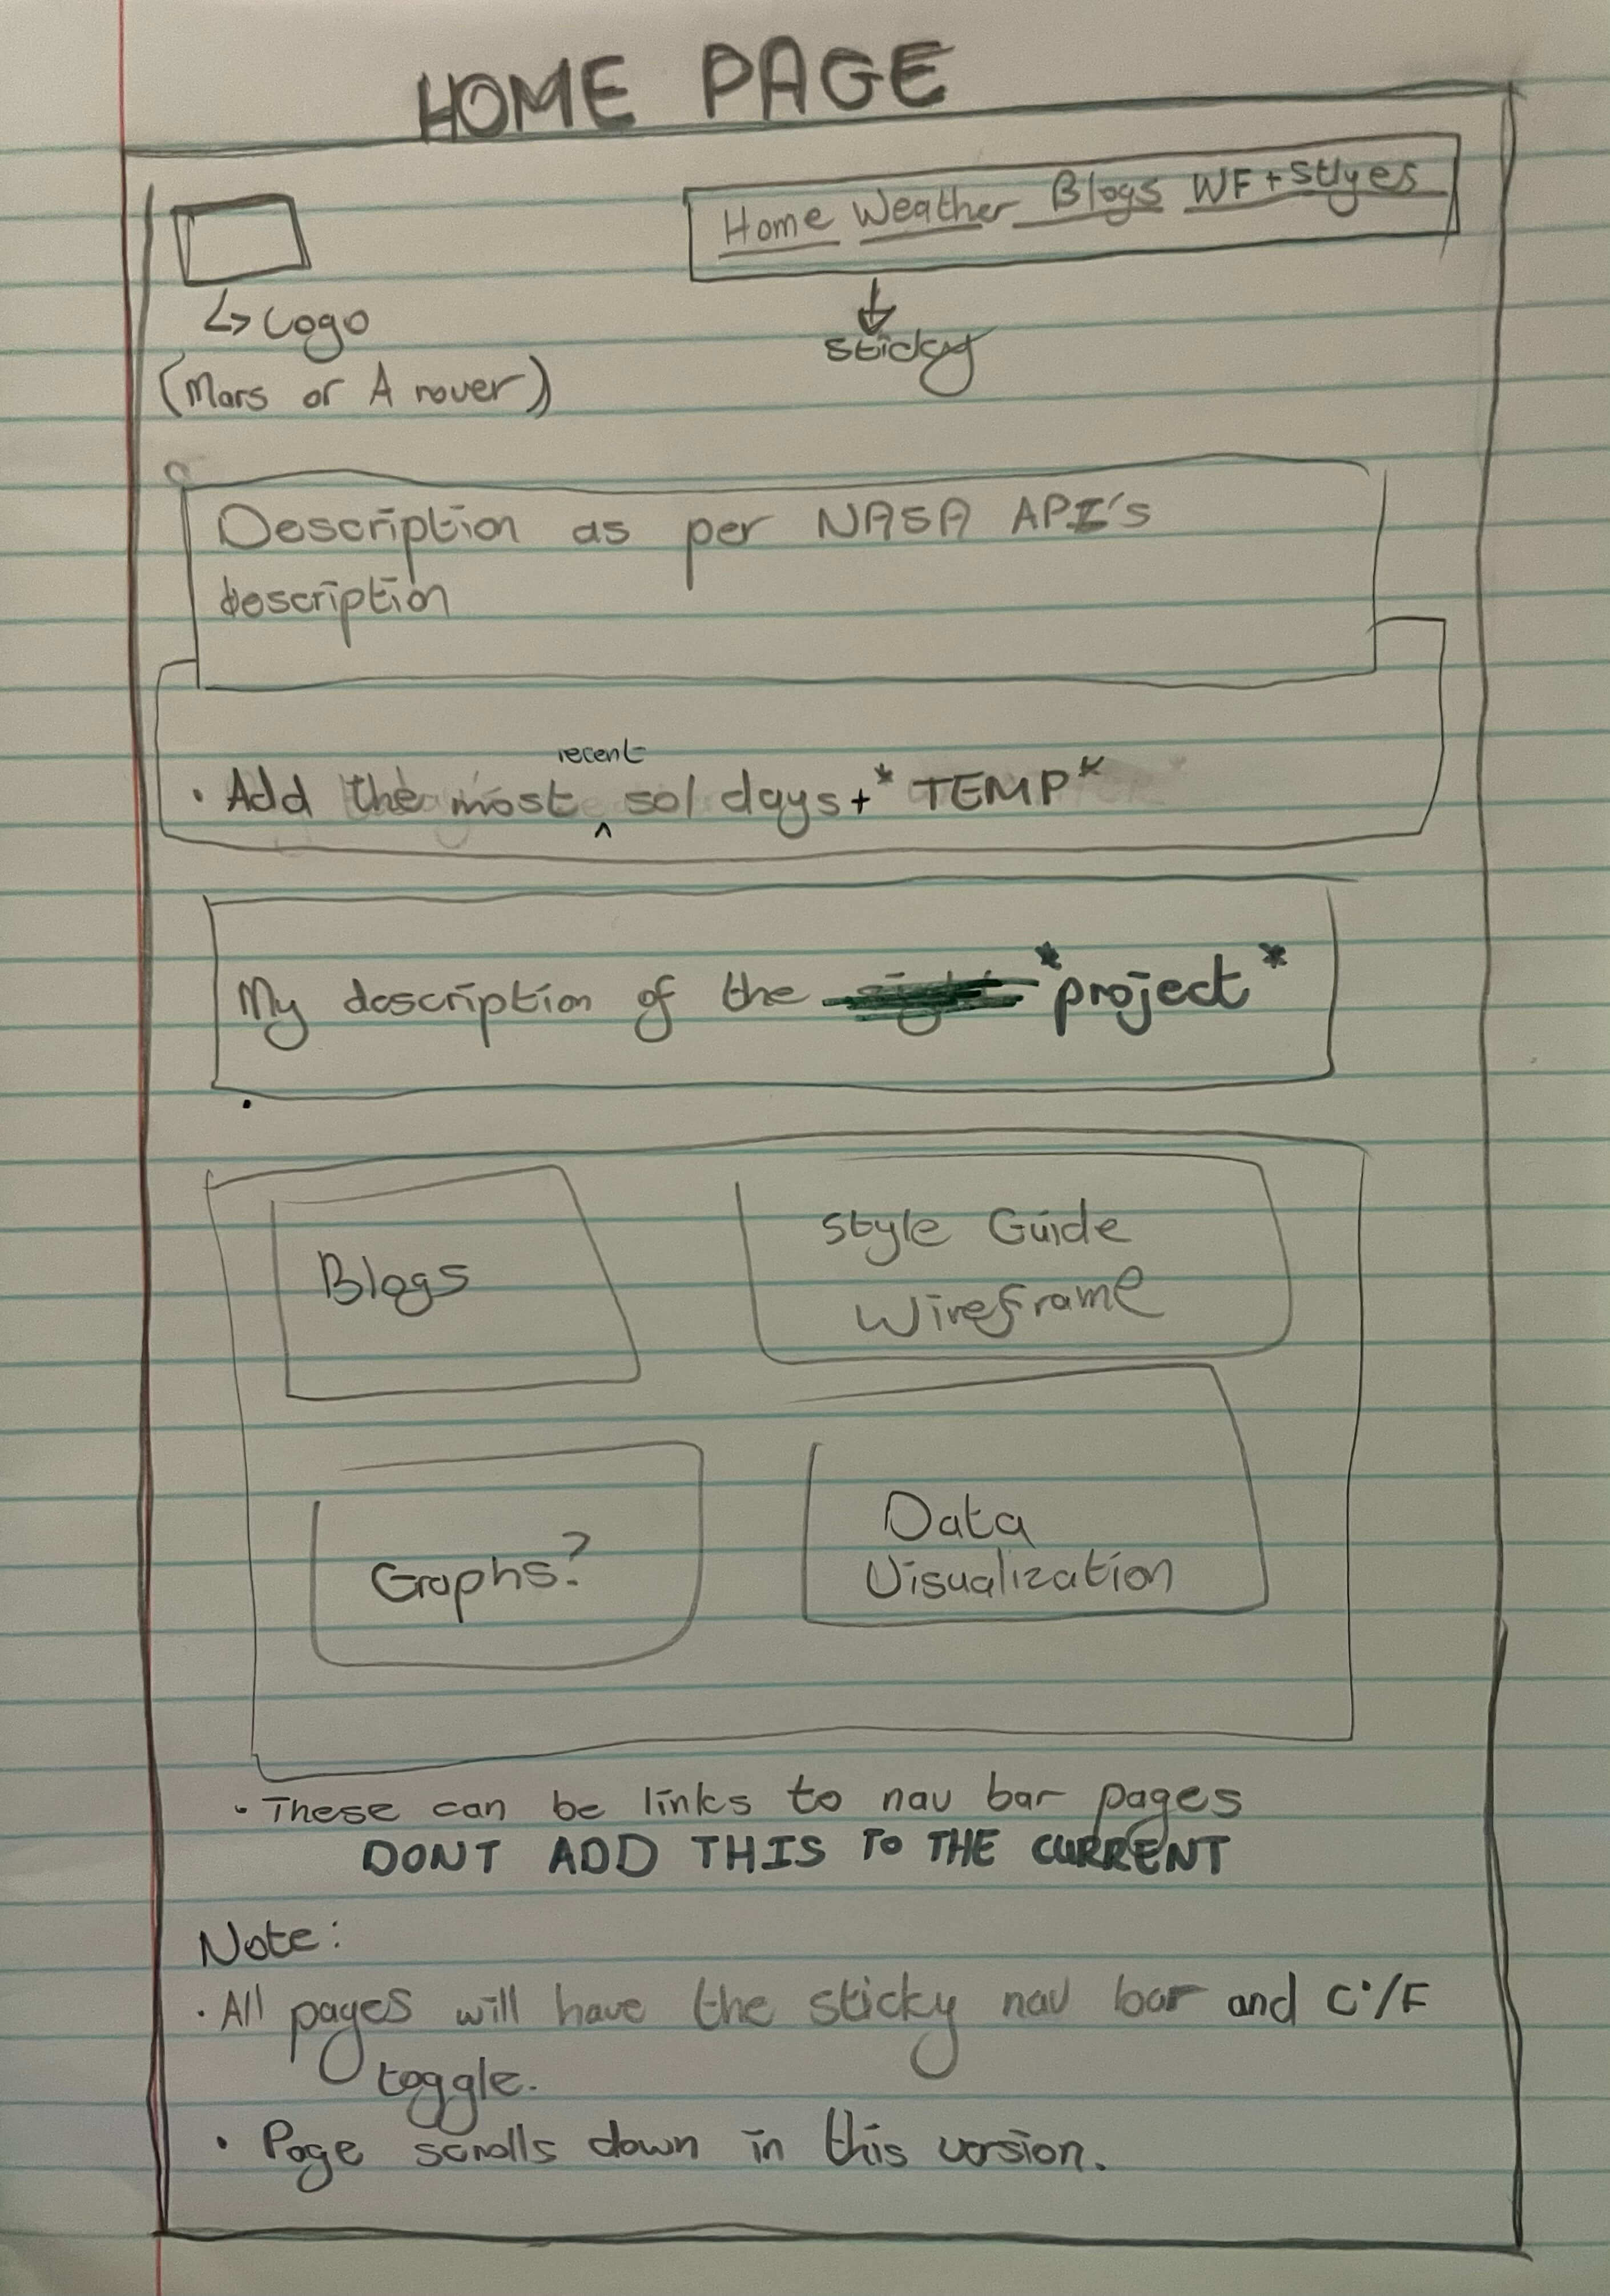 HOME PAGE
Home Weather Blogs WF + Stlyes
↳ Logo
sticky
(Mars or A rover)
Description as per NASA API's
description
recent
• Add the most ^ sol days + *TEMP*
My description of the *project*
Blogs
Style Guide
Wireframe
Graphs?
Data
Visualization
• These can be links to nav bar pages
DONT ADD THIS TO THE CURRENT
Note:
• All pages will have the sticky nav bar and C°/F
toggle.
• Page scrolls down in this version.